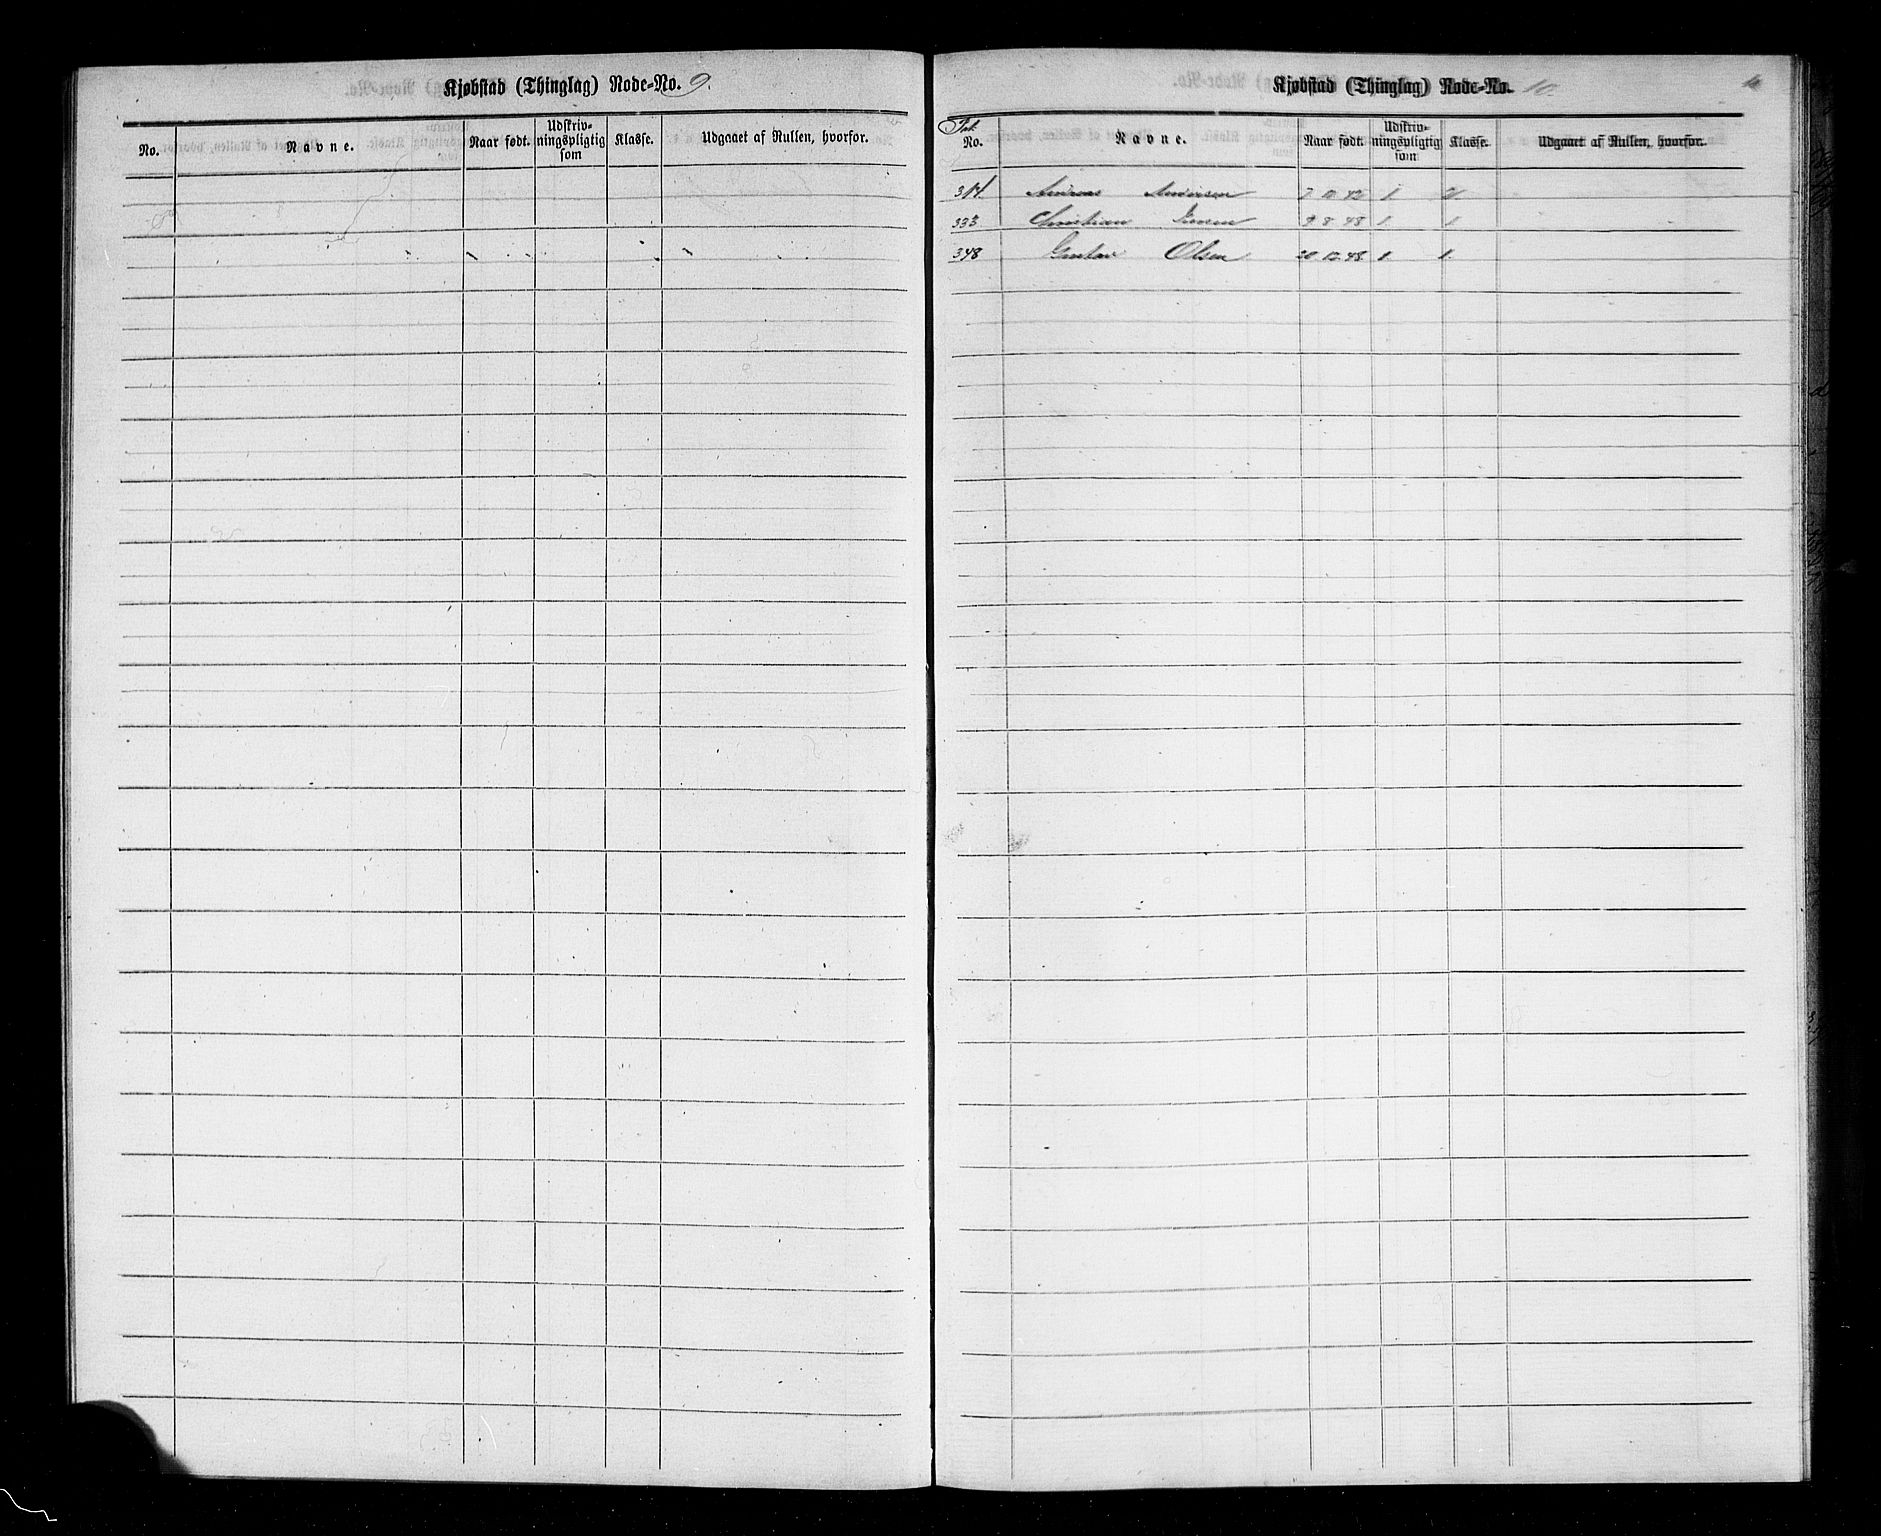 Kjøbstad (Thinglag) Rode-No. 9.
No. Navne. Naar født. Udskriv-ningspligtig som Klasse. Udgaaet af Rullen, hvorfor.
Kjøbstad (Thinglag) Rode-No. 10.
No. Navne. Naar født. Udskriv-ningspligtig som Klasse. Udgaaet af Rullen, hvorfor.
314 Andreas Andersen 1.
333 Christian 9 8 48 1. 1.
348 Gustav Olsen 20 12 48 1. 1.